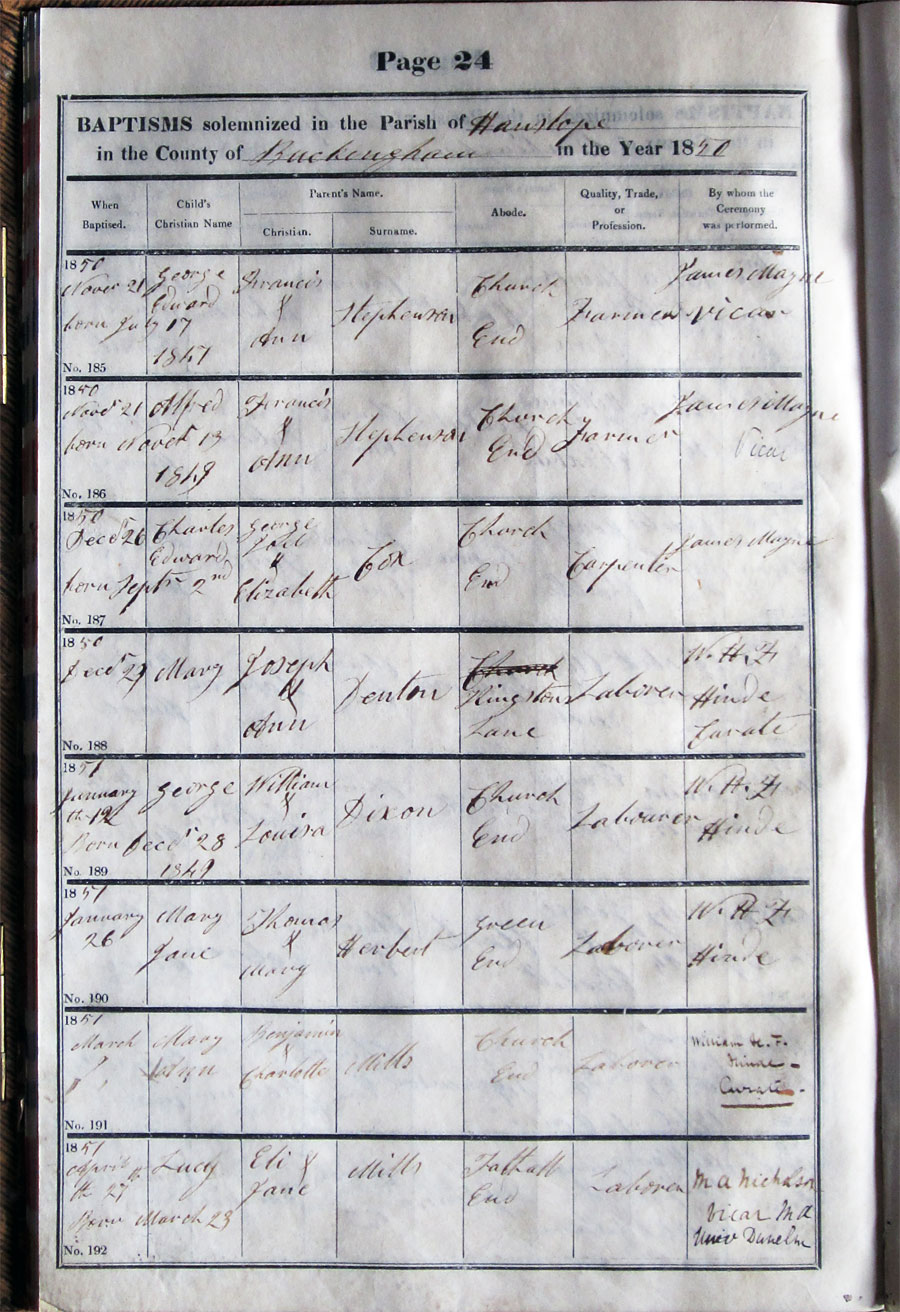 Page 24
BAPTISMS solemnized in the Parish of Hanslope
in the County of Buckingham in the Year 1850
When Baptised.
Child's Christian Name
Parent's Name.
Christian.
Surname.
Abode.
Quality, Trade, or Profession.
By whom the Ceremony was performed.
1850
Novr 21
born July 17
1847
George
Edward
Francis
&
Ann
Stephenson
Church
End
Farmer
James Mayne
Vicar
No. 185
1850
Novr 21
born Novr 13
1849
Alfred
Francis
&
Ann
Stephenson
Church
End
Farmer
James Mayne
Vicar
No. 186
1850
Decr 26
born Septr 2nd
Charles
Edward
George
&
Elizabeth
Cox
Church
End
Carpenter
James Mayne
No. 187
1850
Decr 29
Mary
Joseph
&
Ann
Denton
Church
Kingston
Lane
Laborer
W. H. F
Hinde
Curate
No. 188
1851
January
th 12
Born Decr 28
1849
George
William
&
Louisa
Dixon
Church
End
Labourer
W. H. F
Hinde
No. 189
1851
January
26
Mary
Jane
Thomas
&
Mary
Herbert
Green
End
Laborer
W. H. F
Hinde
No. 190
1851
March
Mary
Ann
Benjamin
&
Charlotte
Mills
Church
End
Laborer
William H. F.
Hinde
Curate
No. 191
1851
April
th 27th
Born March 23
Lucy
Eli &
Jane
Mills
Tathall
End
Laborer
M A Nicholson
Vicar M A
Univ Dunelm
No. 192